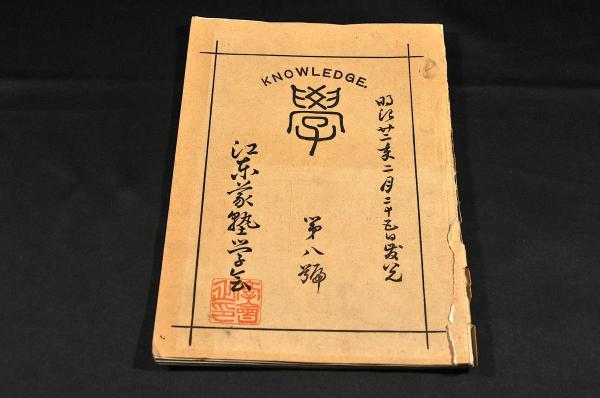 KNOWLEDGE.
學
明治廿二年二月二十五日発兌
第八號
江東義塾学会